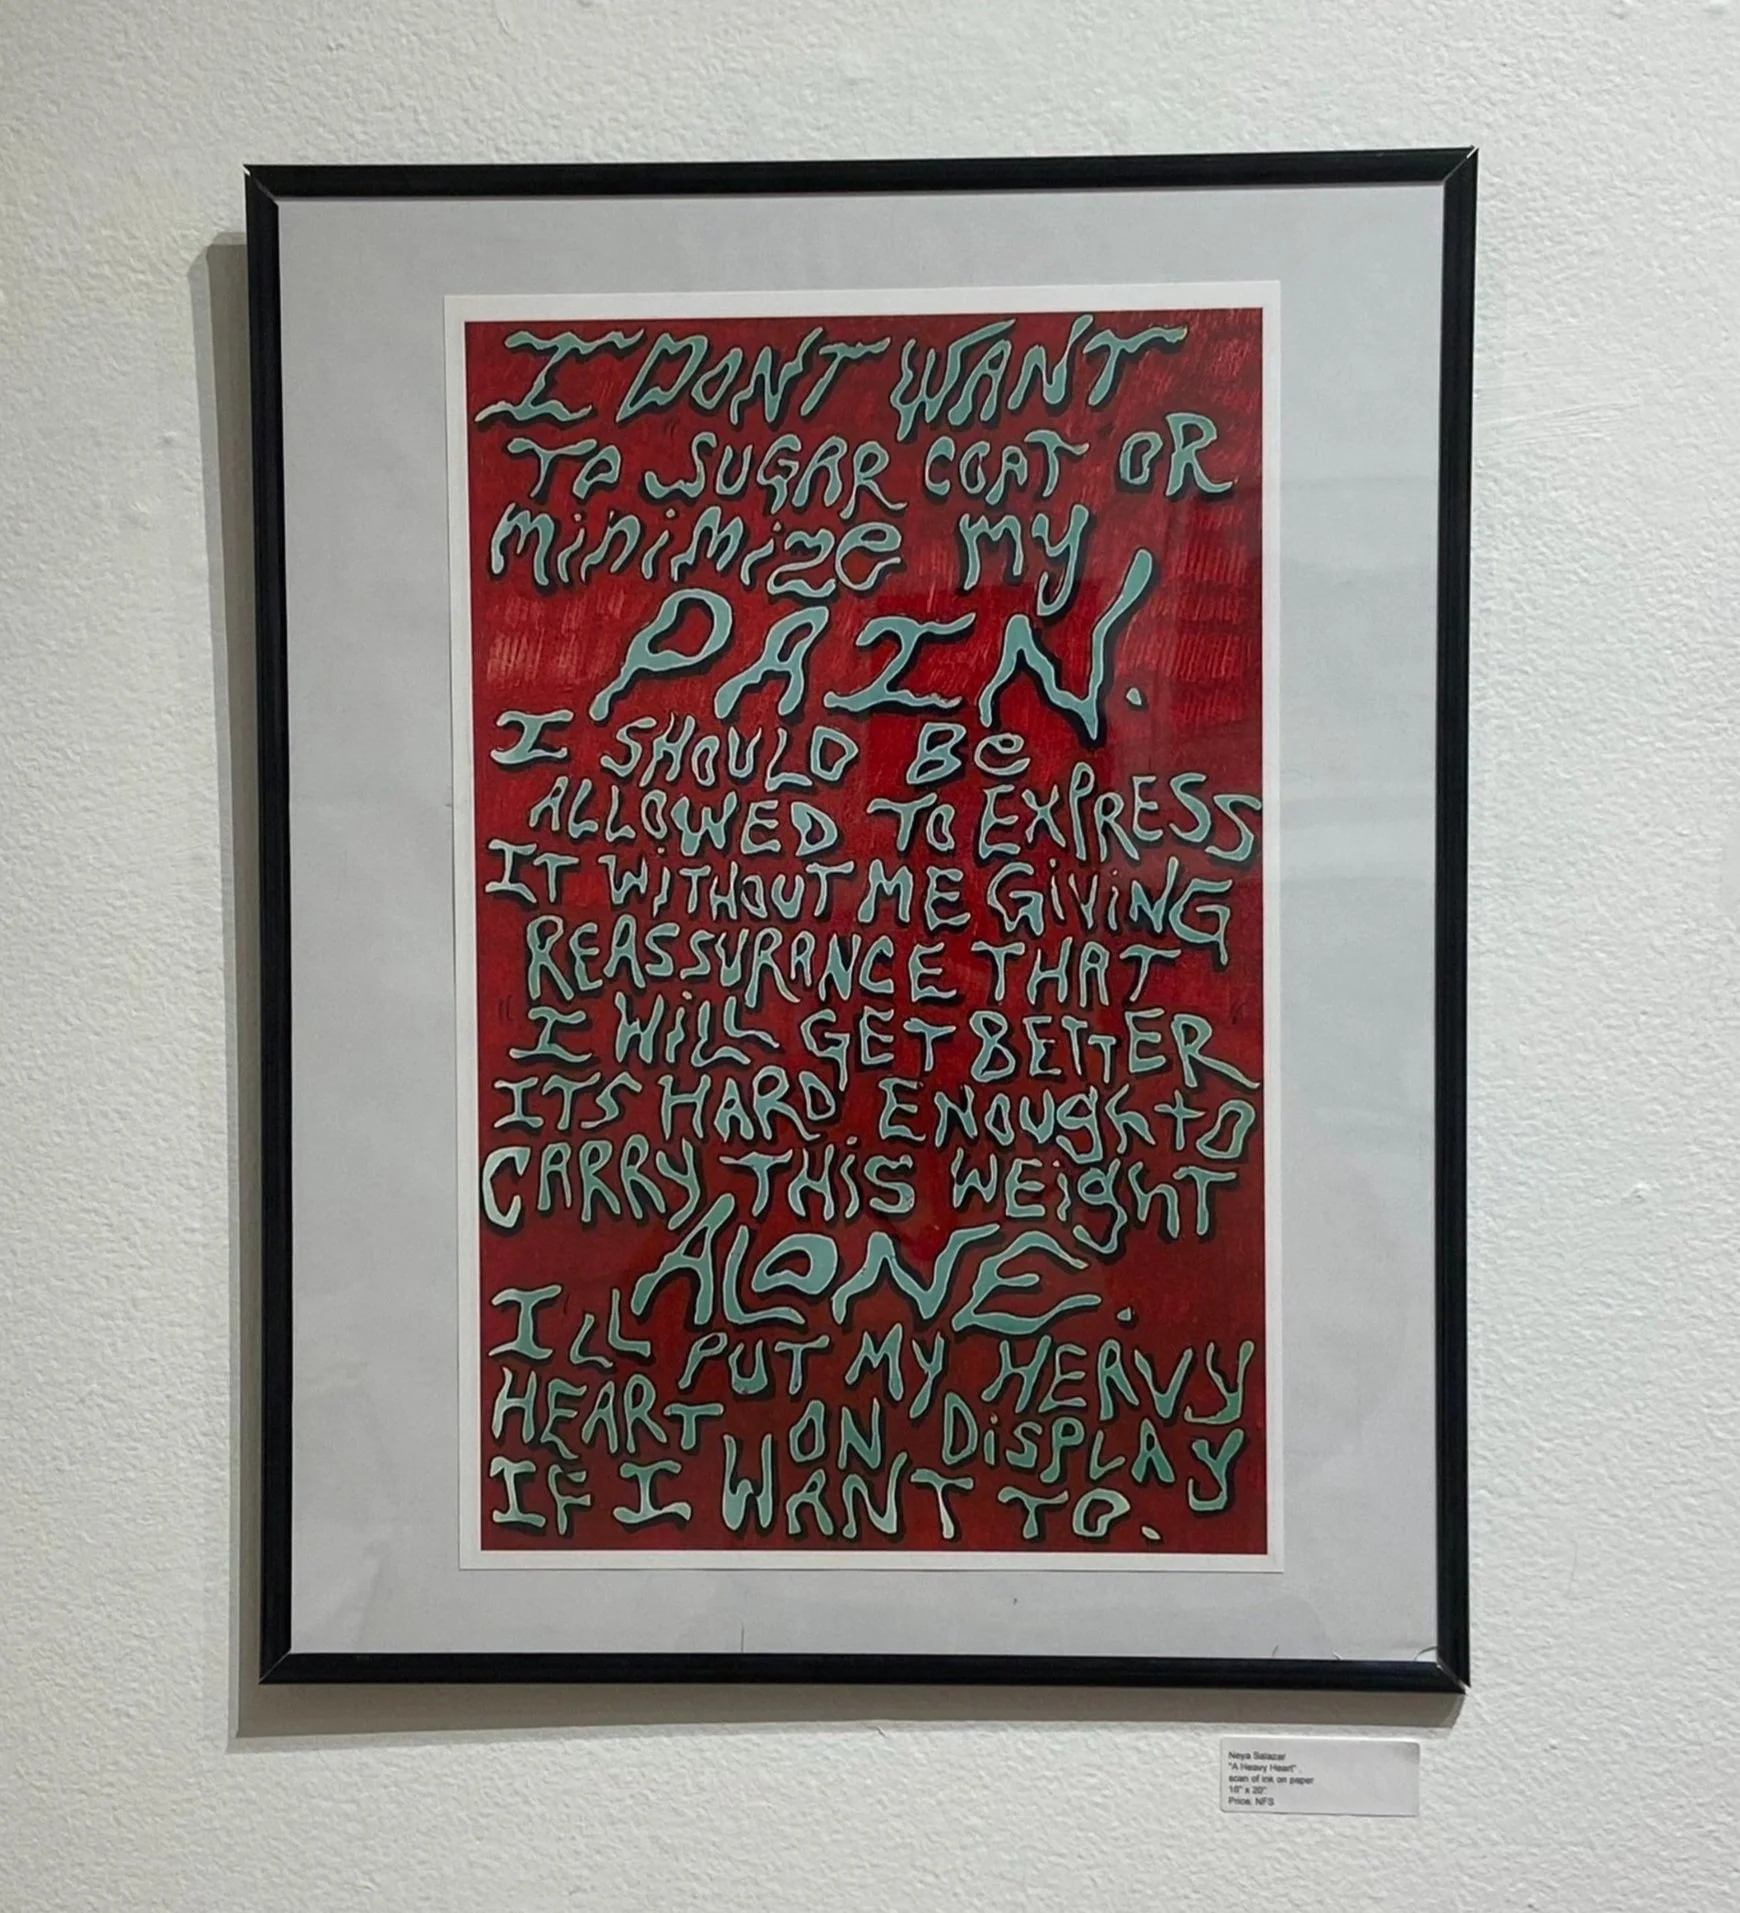 I DONT WANT
TO SUGAR COAT OR
miniMize my
PAIN.
I SHOULD Be
ALLOWED TO EXPRESS
IT WITHOUT ME GiViNG
REASSURANCE THAT
I WiLL GET BETTER
ITS HARD ENOUgh tO
CARRY THiS WEighT
ALONE.
ILL PUT MY HEAVY
HEART ON DiSPLAY
IF I WANT TO.
Neya Salazar
"A Heavy Heart"
scan of ink on paper
16" x 20"
Price: NFS